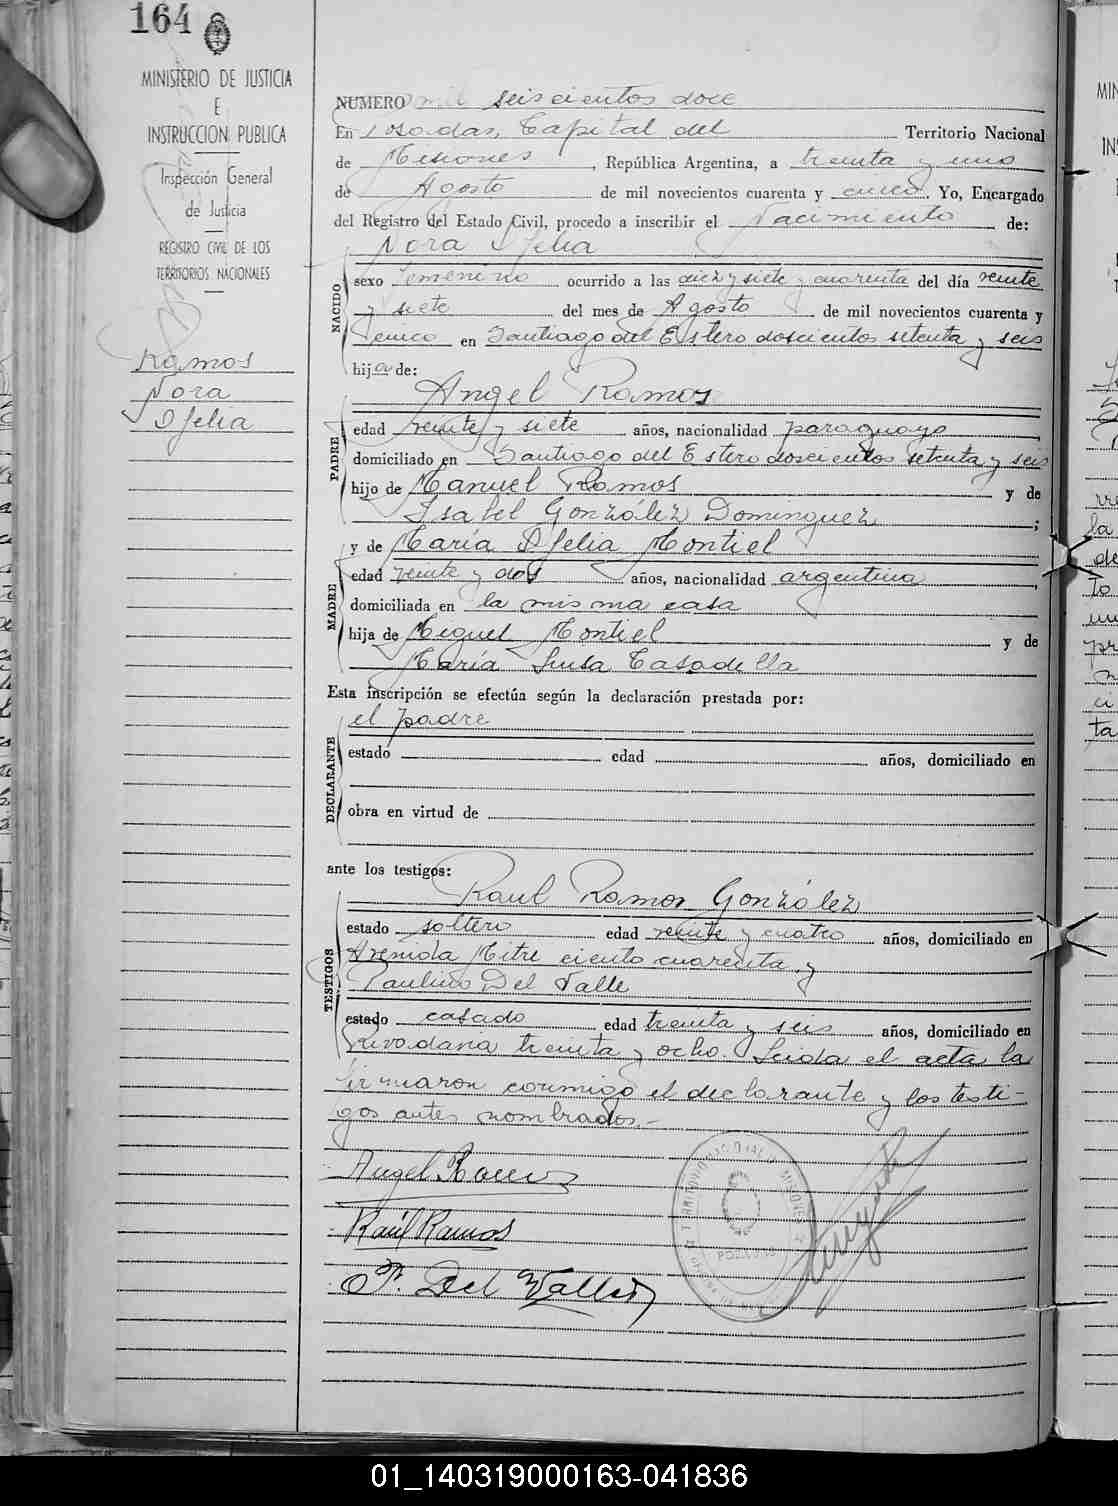 164
MINISTERIO DE JUSTICIA
E
INSTRUCCION PUBLICA
Inspección General
de Justicia
REGISTRO CIVIL DE LOS
TERRITORIOS NACIONALES
Ramos
Nora
Ofelia
NUMERO mil seiscientos doce
En Posadas, Capital del Territorio Nacional
de Misiones, República Argentina, a treinta y uno
de Agosto de mil novecientos cuarenta y cinco. Yo, Encargado
del Registro del Estado Civil, procedo a inscribir el Nacimiento de:
Nora Ofelia
NACIDO
sexo femenino ocurrido a las diez y siete y cuarenta del día veinte
y siete del mes de Agosto de mil novecientos cuarenta y
cinco en Santiago del Estero doscientos setenta y seis
hija de:
Angel Ramos
PADRE
edad veinte y siete años, nacionalidad paraguaya
domiciliado en Santiago del Estero doscientos setenta y seis
hijo de Manuel Ramos y de
Isabel González Dominguez ;
y de María Ofelia Montiel
MADRE
edad veinte y dos años, nacionalidad argentina
domiciliada en la misma casa
hija de Miguel Montiel y de
María Luisa Casadella
Esta inscripción se efectúa según la declaración prestada por:
el padre
DECLARANTE
estado edad años, domiciliado en
obra en virtud de
ante los testigos:
Raul Ramos González
TESTIGOS
estado soltero edad veinte y cuatro años, domiciliado en
Avenida Mitre ciento cuarenta y
Paulino Del Valle
estado casado edad treinta y seis años, domiciliado en
Rivadavia treinta y ocho. Leida el acta la
firmaron conmigo el declarante y los testi-
gos antes nombrados.-
Angel Ramos
Raúl Ramos
P. Del Valle
POSADAS
01_140319000163-041836